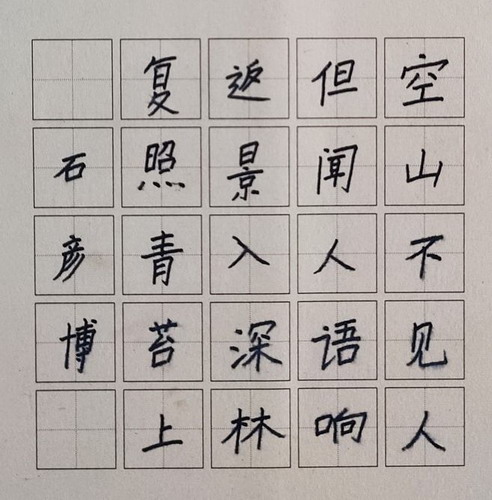 空山不见人
但闻人语响
返景入深林
复照青苔上
石彦博